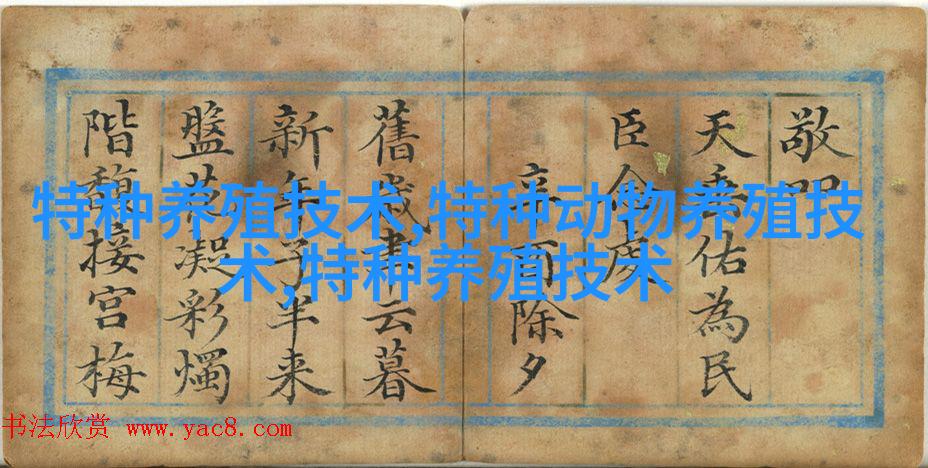 敬
天垂佑為民
臣
辛酉除夕
舊歲聿云暮
新年子半来
盤花凝彩燭
階馥接宮梅
特种养殖技术,特种动物养殖技
术,特种养殖技术
书法欣赏 www.yac8.com